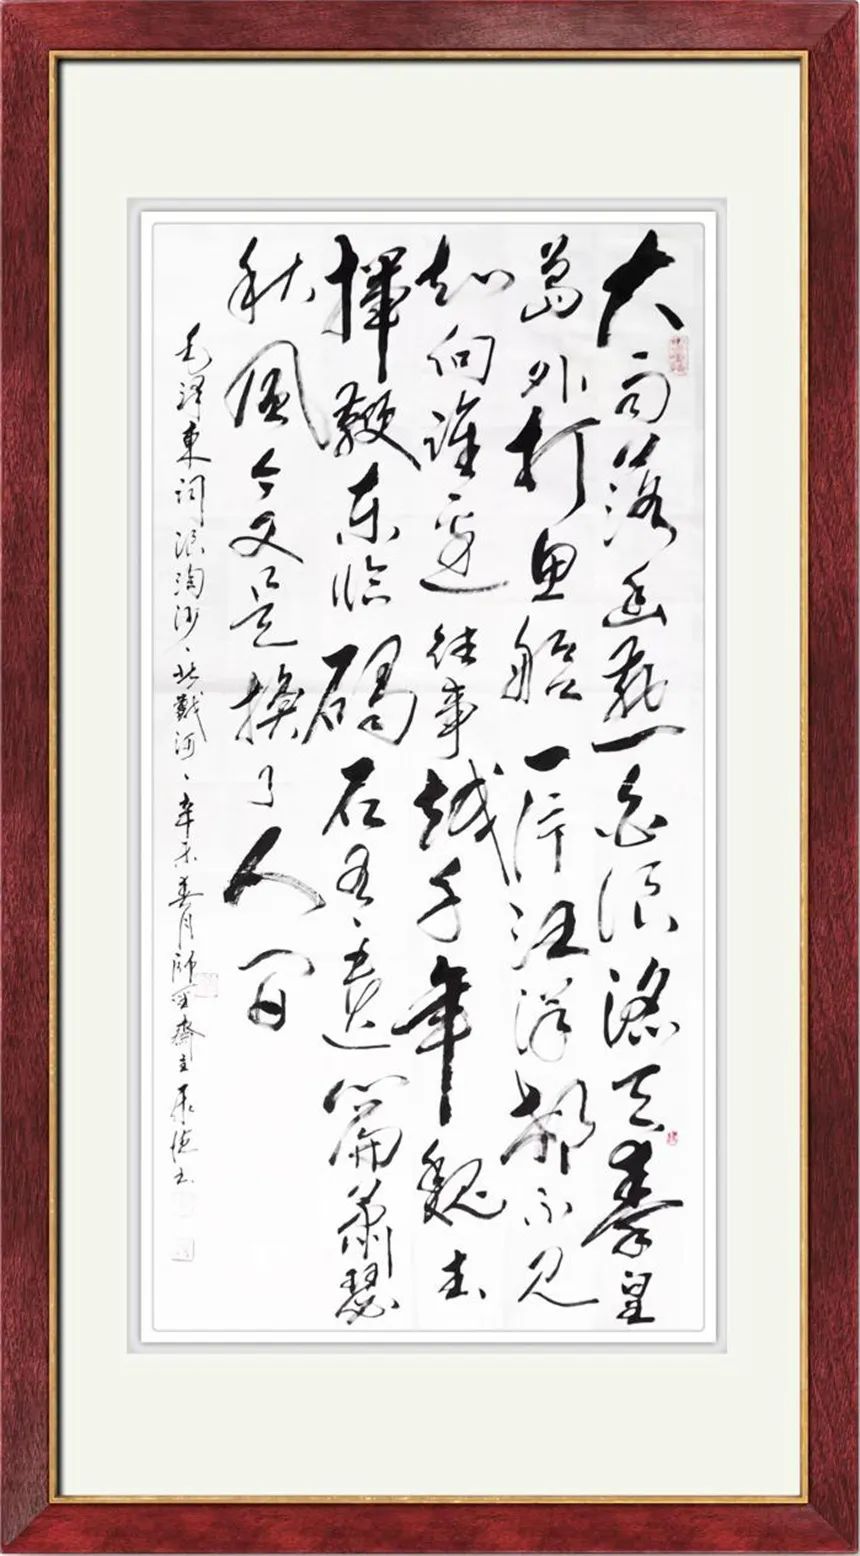 大雨落幽燕白浪滔天秦皇
島外打魚船一片汪洋都不見
知向誰邊往事越千年魏武
揮鞭东临碣石有遗篇萧瑟
秋風今又是換了人间
毛泽東词浪淘沙、北戴河、辛未春月師齋主书